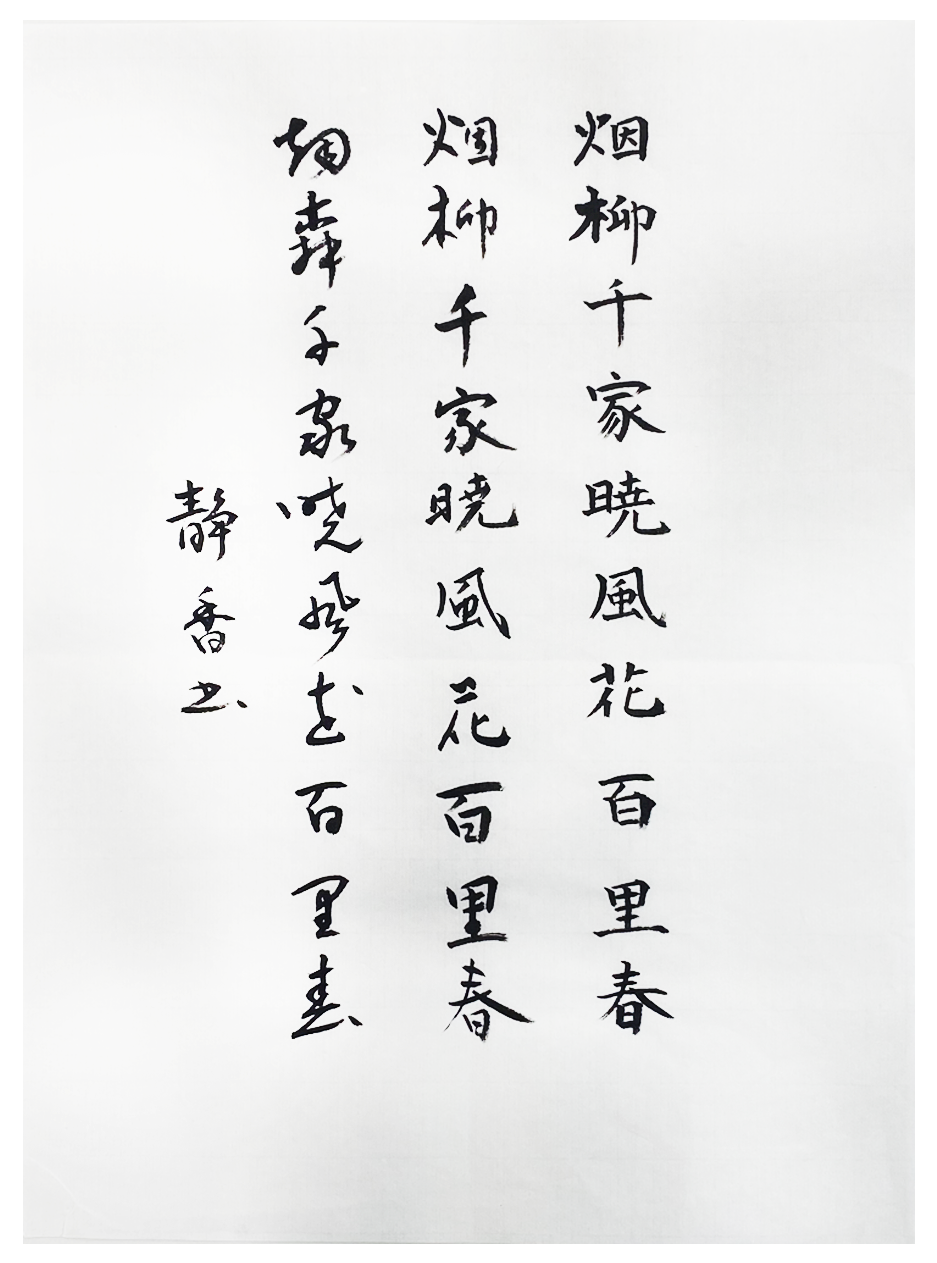 烟柳千家暁風花百里春
烟柳千家暁風花百里春
烟柳千家暁風花百里春
静香书